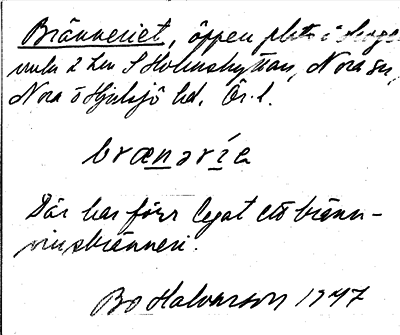 Bränneriet, öppen plats i skoge
under 2 km S Holmshyttan, Nora sn,
Nora o Hjulsjö hd, Ör. l.
brænəríə
Där har förr legat ett bränn-
vinsbränneri.
Bo Halvarson 1947